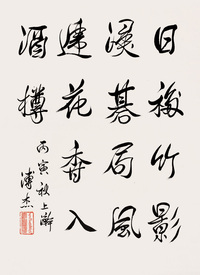 日移竹影
侵碁局風
遞花香入
酒樽
丙寅秋上澣
溥杰